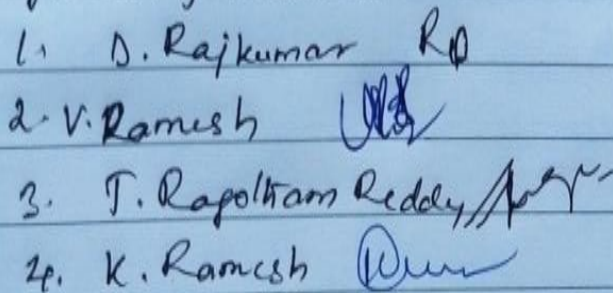 1. D. Rajkumar RD
2. V. Ramesh
3. T. Ragotham Reddy
4. K. Ramesh